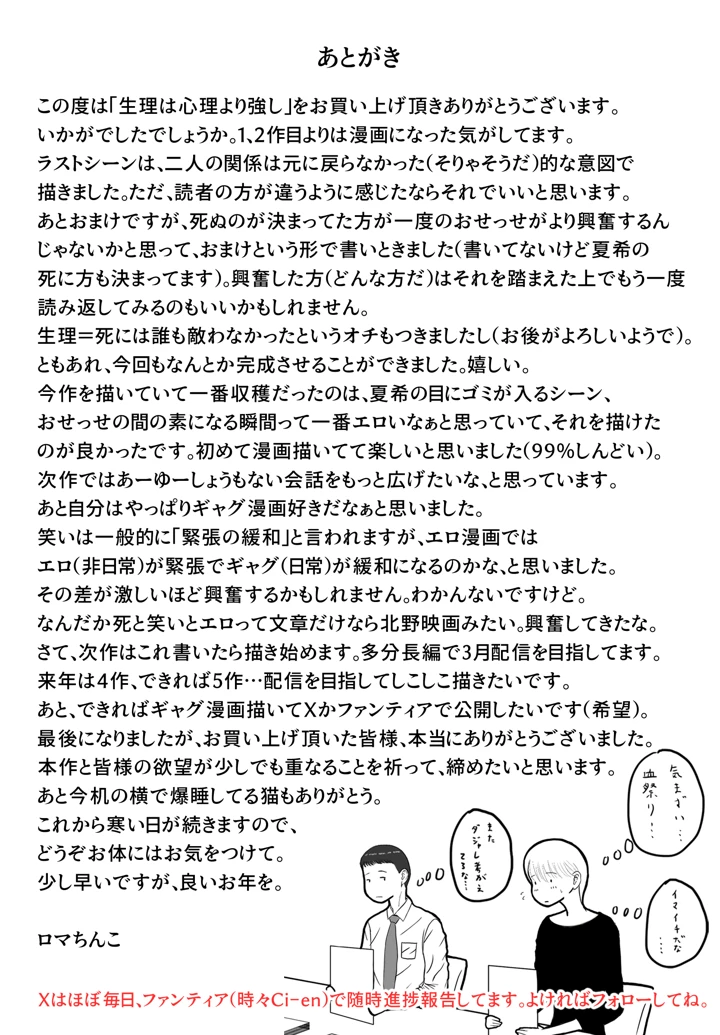 あとがき
この度は「生理は心理より強し」をお買い上げ頂きありがとうございます。
いかがでしたでしょうか。1、2作目よりは漫画になった気がしてます。
ラストシーンは、二人の関係は元に戻らなかった(そりゃそうだ)的な意図で
描きました。ただ、読者の方が違うように感じたならそれでいいと思います。
あとおまけですが、死ぬのが決まってた方が一度のおせっせがより興奮するん
じゃないかと思って、おまけという形で書いときました(書いてないけど夏希の
死に方も決まってます)。興奮した方(どんな方だ)はそれを踏まえた上でもう一度
読み返してみるのもいいかもしれません。
生理=死には誰も敵わなかったというオチもつきましたし(お後がよろしいようで)。
ともあれ、今回もなんとか完成させることができました。嬉しい。
今作を描いていて一番収穫だったのは、夏希の目にゴミが入るシーン、
おせっせの間の素になる瞬間って一番エロいなぁと思っていて、それを描けた
のが良かったです。初めて漫画描いてて楽しいと思いました(99%しんどい)。
次作ではあーゆーしょうもない会話をもっと広げたいな、と思っています。
あと自分はやっぱりギャグ漫画好きだなぁと思いました。
笑いは一般的に「緊張の緩和」と言われますが、エロ漫画では
エロ(非日常)が緊張でギャグ(日常)が緩和になるのかな、と思いました。
その差が激しいほど興奮するかもしれません。わかんないですけど。
なんだか死と笑いとエロって文章だけなら北野映画みたい。興奮してきたな。
さて、次作はこれ書いたら描き始めます。多分長編で3月配信を目指してます。
来年は4作、できれば5作…配信を目指してしこしこ描きたいです。
あと、できればギャグ漫画描いてXかファンティアで公開したいです(希望)。
最後になりましたが、お買い上げ頂いた皆様、本当にありがとうございました。
本作と皆様の欲望が少しでも重なることを祈って、締めたいと思います。
あと今机の横で爆睡してる猫もありがとう。
これから寒い日が続きますので、
どうぞお体にはお気をつけて。
少し早いですが、良いお年を。
気まずい…
血祭り…
また
ダジャレ考がえ
てるな…
イマイチだな
……
ロマちんこ
Xはほぼ毎日、ファンティア(時々Ci-en)で随時進捗報告してます。よければフォローしてね。